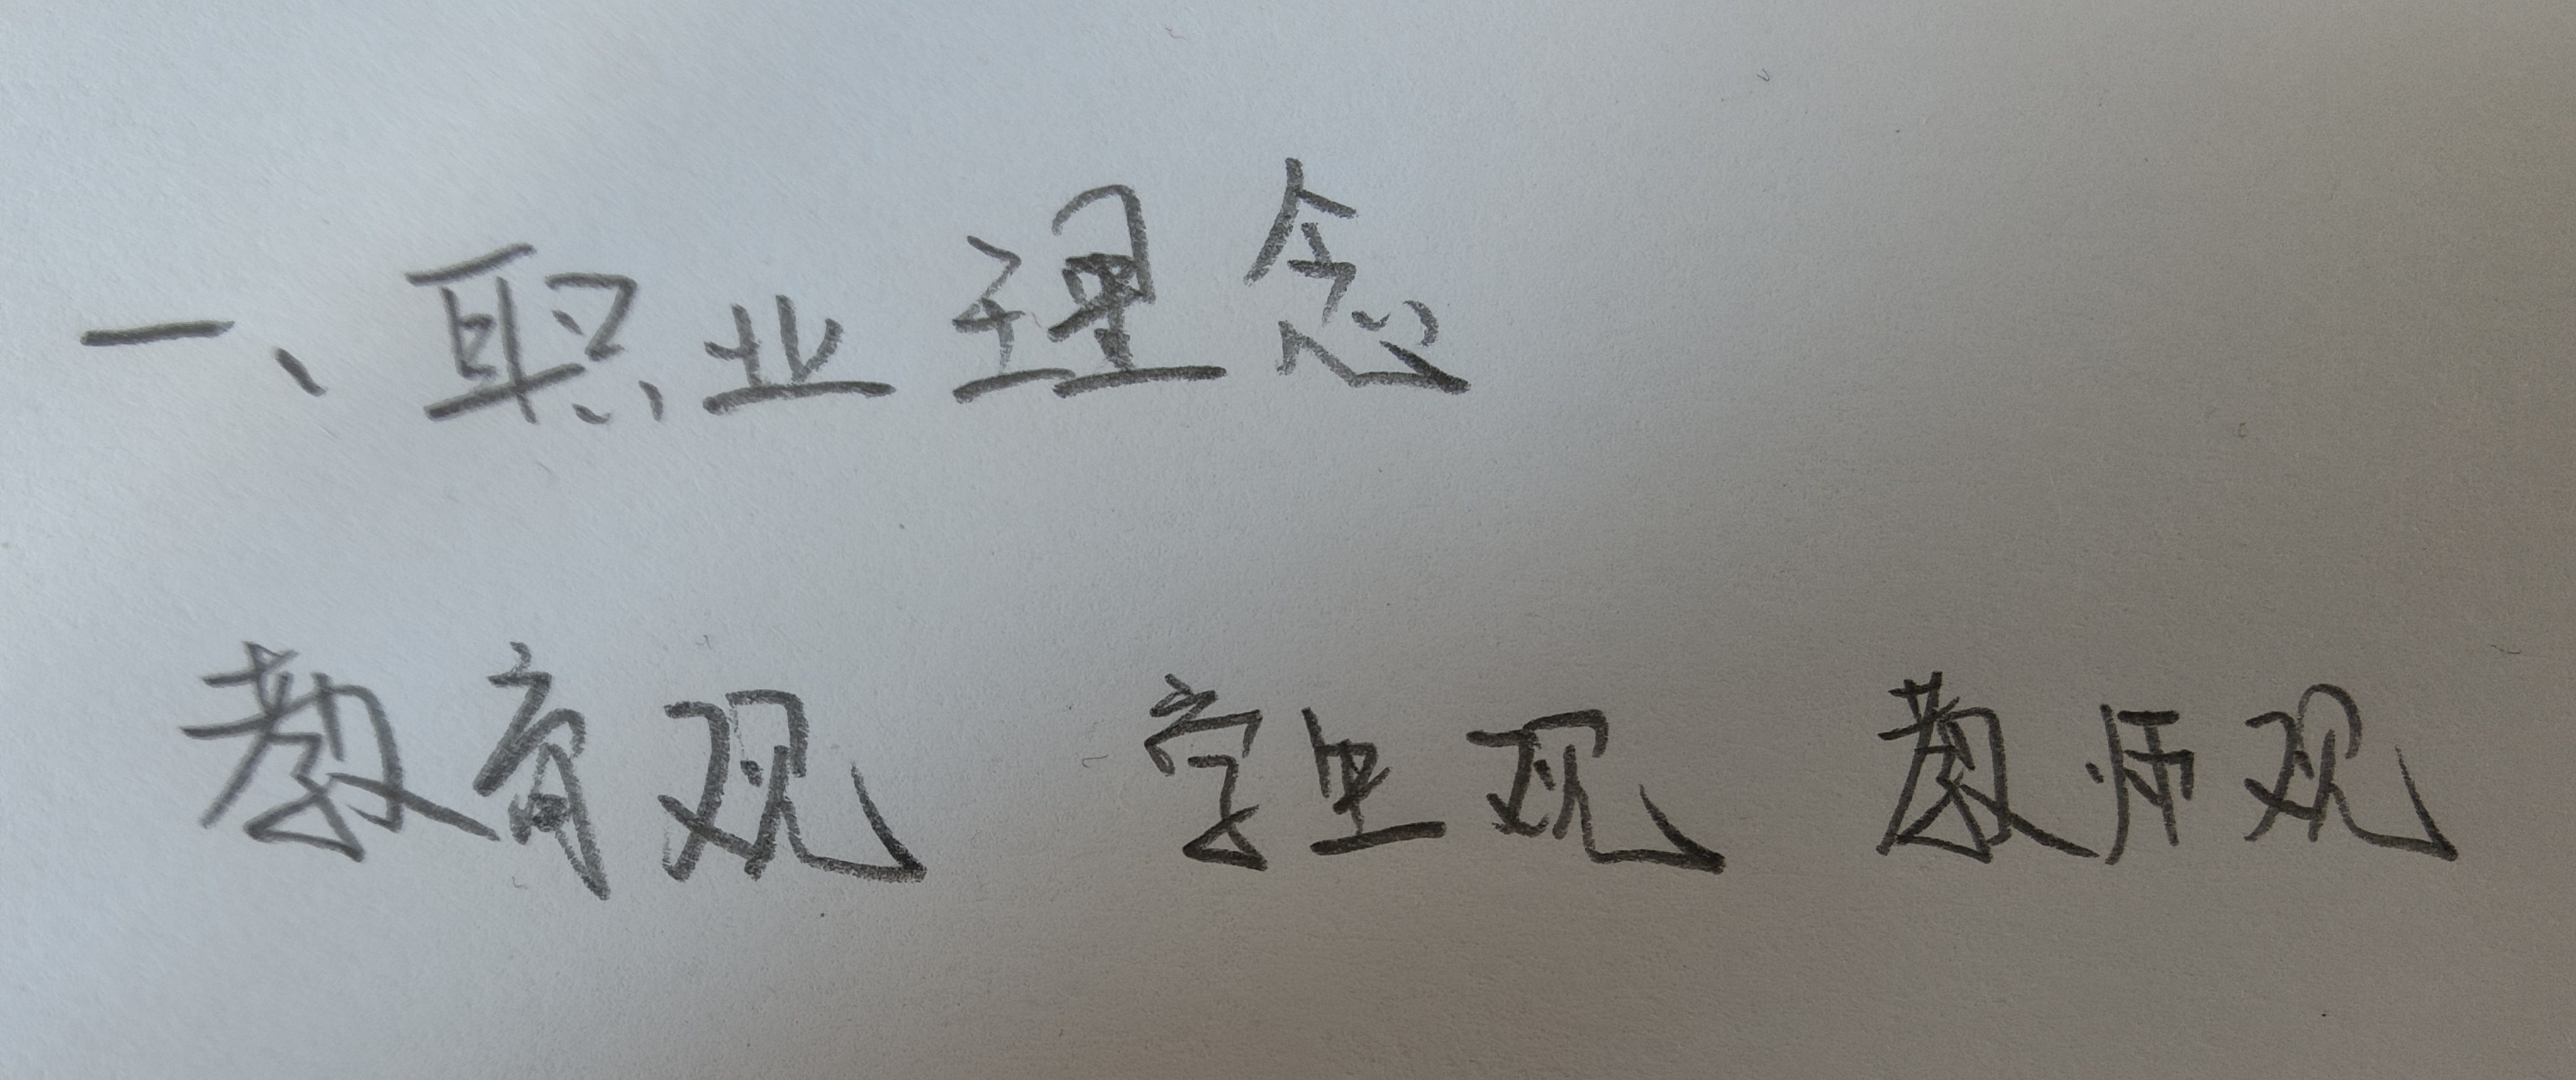 一、职业理念
教育观 学生观 教师观